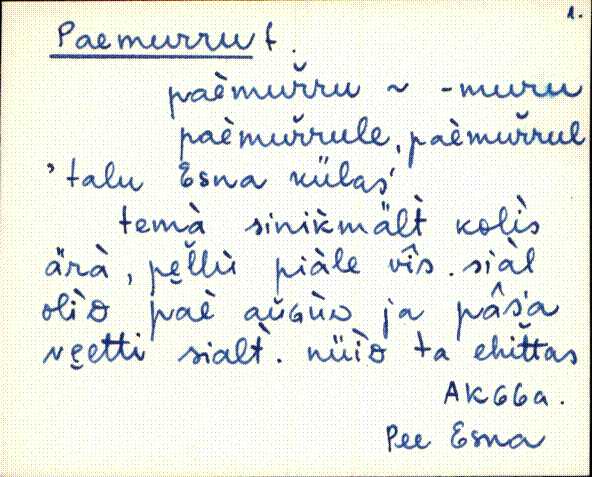 1.
Paemurru t.
paèmur̆ru ~ -muru
paèmur̆rule, paèmur̆rul
'talu Esna külas'
temà sinikmält̀ kolìs
ärà, pel̆lù piàle vîs. siàl
olìᴅ paè aŭɢùᴅ ja pâśa
veetti sialt̀. nüìᴅ ta ehit̆tas
AK66a.
Pee Esna